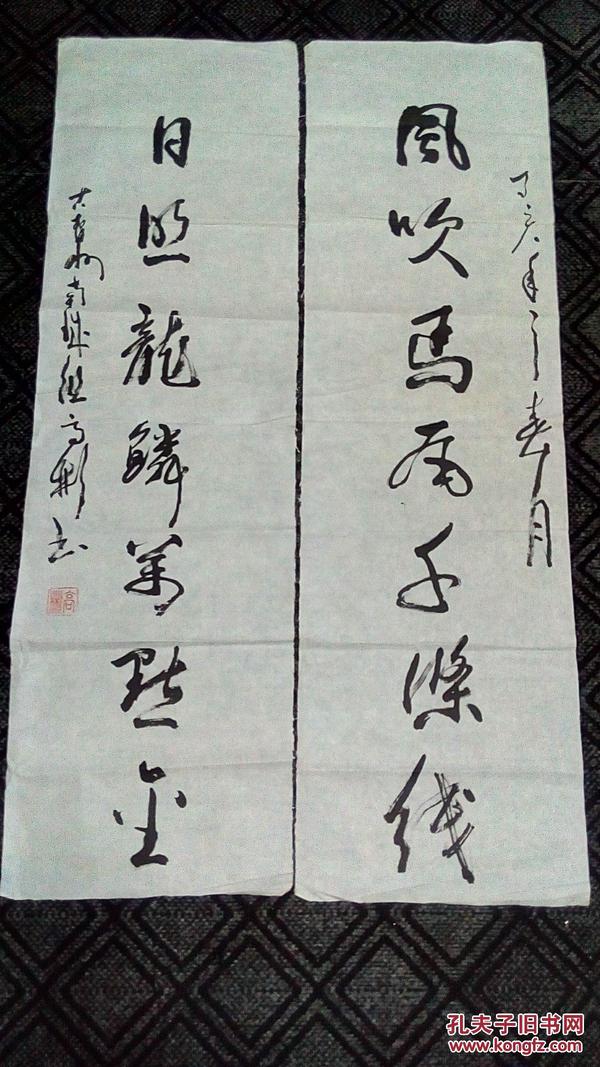 丁亥年之春月
風吹馬尾千條线
日照龍鱗萬點金
高彬书
孔夫子旧书网
www.kongfz.com